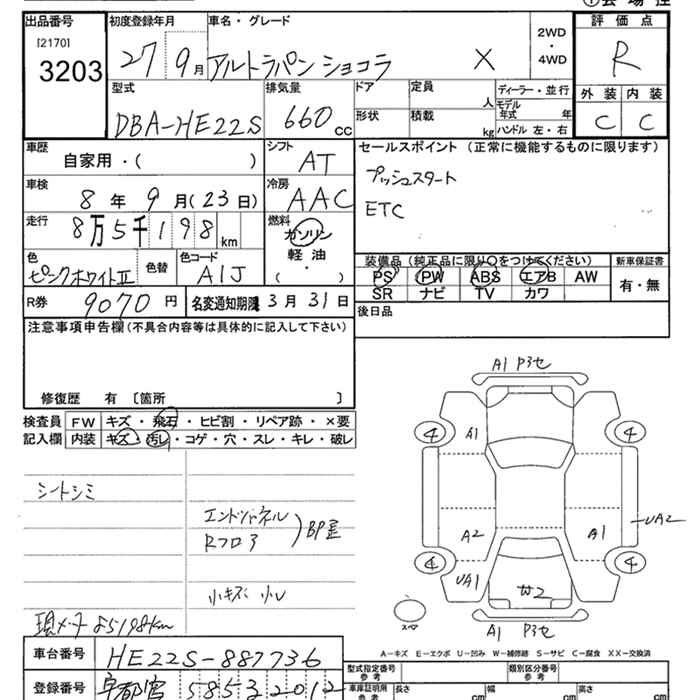 出品番号 初度登録年月 車名・グレード 2WD・4WD 評価点
[2170]
3203 27 9月 アルトラパン ショコラ X R
型式 排気量 ドア 定員 人 ディーラー・並行 外装 内装
DBA-HE22S 660cc 形状 積載 kg モデル年式 年 C C
ハンドル 左・右
車歴 自家用・( ) シフト AT セールスポイント (正常に機能するものに限ります)
車検 8年 9月(23日) 冷房 AAC プッシュスタート
走行 8万5千198km 燃料 ガソリン 軽油 ( ・ ) ETC
色 ピンクホワイトⅡ 色替 色コード A1J
装備品(純正品に限り○をつけてください) 新車保証書
PS PW ABS エアB AW 有・無
SR ナビ TV カワ
R券 9070円 名変通知期限 3月31日 後日品
注意事項申告欄(不具合内容等は具体的に記入して下さい)
修復歴 有 〔箇所 〕
検査員 FW キズ・飛石・ヒビ割・リペア跡・×要
記入欄 内装 キズ・汚レ・コゲ・穴・スレ・キレ・破レ
シートシミ
エンドパネル
Rフロア
小キズ 小凹
現メーター 85198km
A1
4 A1 4
A2 A1 UA2
4 UA1 4
A1
A-キズ E-エクボ U-凹み W-補修跡 S-サビ C-腐食 XX-交換済
車台番号 HE22S-887736 型式指定番号 参考 類別区分番号 参考
登録番号 宇都宮 585 2012 車庫証明用 参考 長さ cm 幅 cm 高さ cm